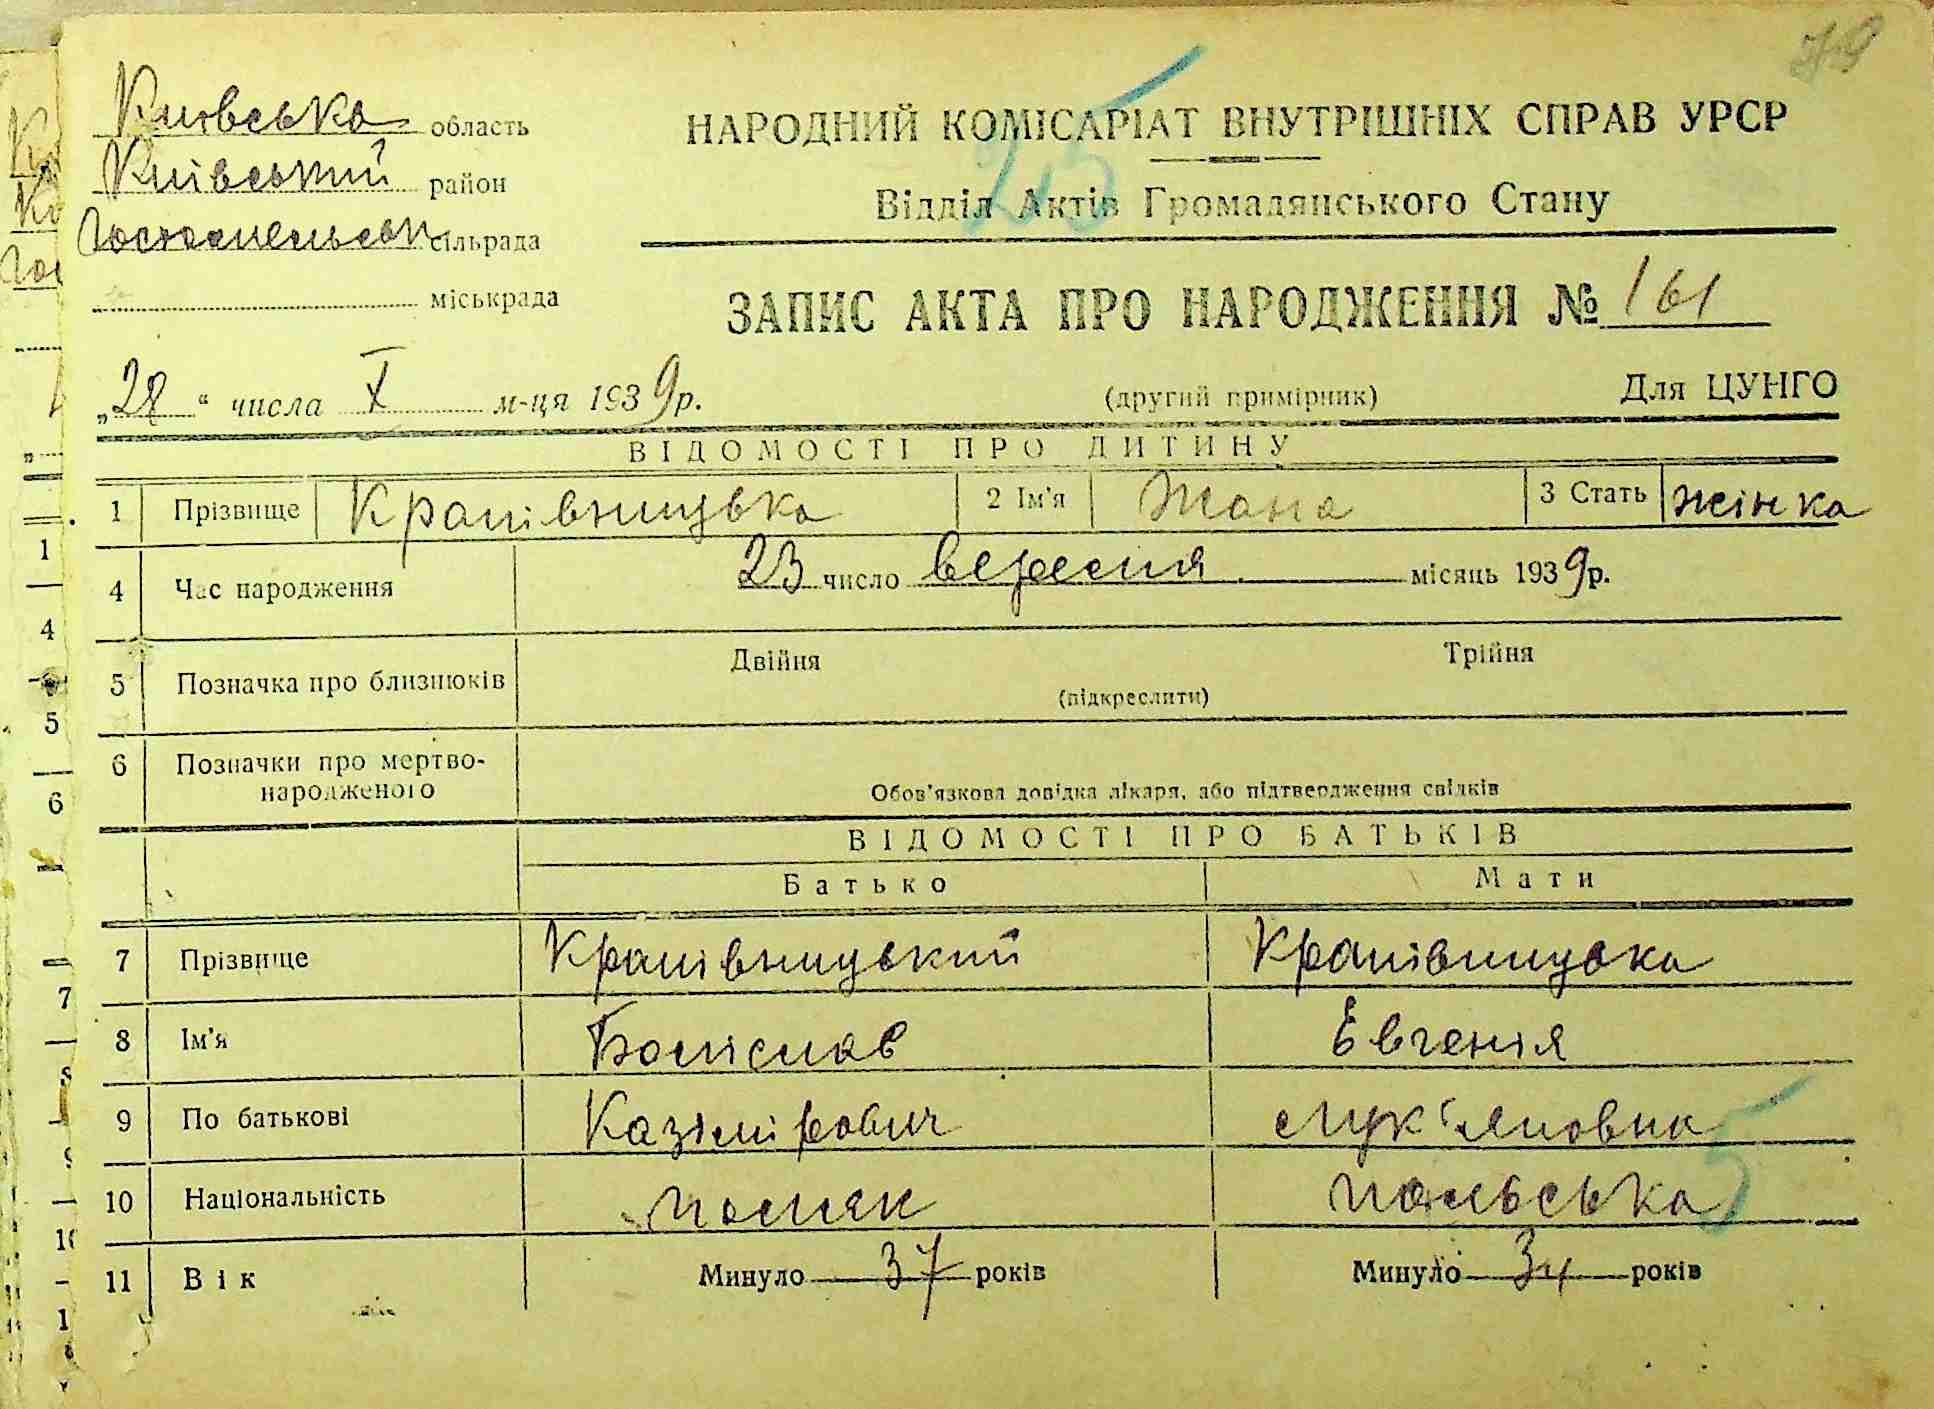 Київська область
Київський район
Гостомельськ сільрада
міськрада
НАРОДНИЙ КОМІСАРІАТ ВНУТРІШНІХ СПРАВ УРСР
25
Відділ Актів Громадянського Стану
ЗАПИС АКТА ПРО НАРОДЖЕННЯ № 161
„28“ числа X м-ця 1939 р.
(другий примірник)
Для ЦУНГО
ВІДОМОСТІ ПРО ДИТИНУ
1 Прізвище Крапівницька 2 Ім'я Жана 3 Стать жінка
4 Час народження 23 число вересня місяць 1939 р.
5 Позначка про близнюків Двійня Трійня
(підкреслити)
6 Позначки про мертво-
народженого
Обов'язкова довідка лікаря, або підтвердження свідків
ВІДОМОСТІ ПРО БАТЬКІВ
Батько Мати
7 Прізвище Крапівницький Крапівницька
8 Ім'я Болісла​в Евгенія
9 По батькові Казімірович Лук'яновна
10 Національність поляк польська 5
11 Вік Минуло 37 років Минуло 34 років